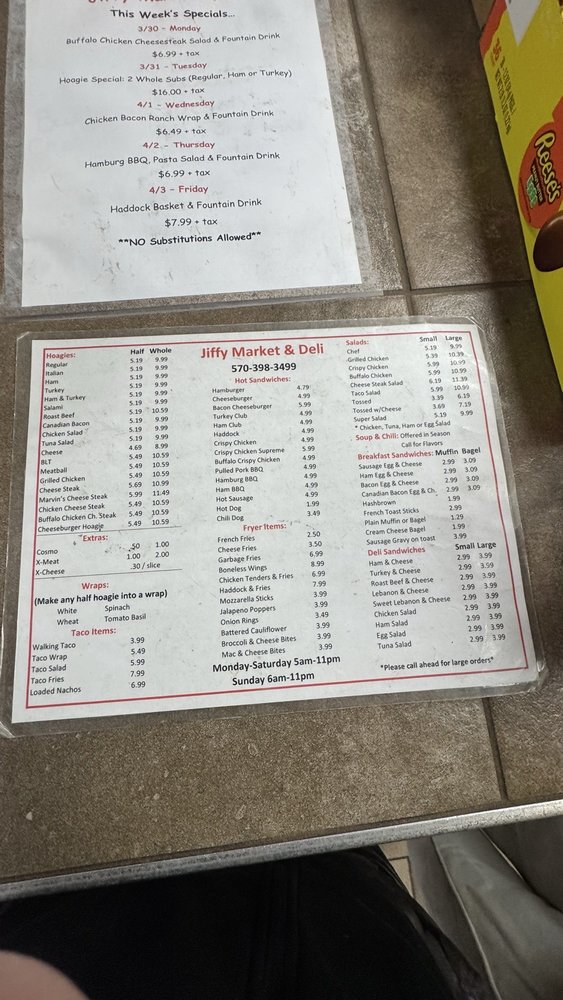 This Week's Specials...
3/30 - Monday
Buffalo Chicken Cheesesteak Salad & Fountain Drink
$6.99 + tax
3/31 - Tuesday
Hoagie Special: 2 Whole Subs (Regular, Ham or Turkey)
$16.00 + tax
4/1 - Wednesday
Chicken Bacon Ranch Wrap & Fountain Drink
$6.49 + tax
4/2 - Thursday
Hamburg BBQ, Pasta Salad & Fountain Drink
$6.99 + tax
4/3 - Friday
Haddock Basket & Fountain Drink
$7.99 + tax
**NO Substitutions Allowed**
Reese's
Jiffy Market & Deli
570-398-3499
Hoagies: Half Whole
Regular 5.19 9.99
Italian 5.19 9.99
Ham 5.19 9.99
Turkey 5.19 9.99
Ham & Turkey 5.19 9.99
Salami 5.19 9.99
Roast Beef 5.19 10.59
Canadian Bacon 5.19 9.99
Chicken Salad 5.19 9.99
Tuna Salad 5.19 9.99
Cheese 4.69 8.99
BLT 5.49 10.59
Meatball 5.49 10.59
Grilled Chicken 5.49 10.59
Cheese Steak 5.69 10.99
Marvin's Cheese Steak 5.99 11.49
Chicken Cheese Steak 5.49 10.59
Buffalo Chicken Ch. Steak 5.49 10.59
Cheeseburger Hoagie 5.49 10.59
Extras:
Cosmo .50 1.00
X-Meat 1.00 2.00
X-Cheese .30 / slice
Wraps:
(Make any half hoagie into a wrap)
White Spinach
Wheat Tomato Basil
Taco Items:
Walking Taco 3.99
Taco Wrap 5.49
Taco Salad 5.99
Taco Fries 7.99
Loaded Nachos 6.99
Hot Sandwiches:
Hamburger 4.79
Cheeseburger 4.99
Bacon Cheeseburger 5.99
Turkey Club 4.99
Ham Club 4.99
Haddock 4.99
Crispy Chicken 4.99
Crispy Chicken Supreme 5.99
Buffalo Crispy Chicken 4.99
Pulled Pork BBQ 4.99
Hamburg BBQ 4.99
Ham BBQ 4.99
Hot Sausage 4.99
Hot Dog 1.99
Chili Dog 3.49
Fryer Items:
French Fries 2.50
Cheese Fries 3.50
Garbage Fries 6.99
Boneless Wings 8.99
Chicken Tenders & Fries 6.99
Haddock & Fries 7.99
Mozzarella Sticks 3.99
Jalapeno Poppers 3.99
Onion Rings 3.49
Battered Cauliflower 3.99
Broccoli & Cheese Bites 3.99
Mac & Cheese Bites 3.99
Monday-Saturday 5am-11pm
Sunday 6am-11pm
Salads: Small Large
Chef 5.19 9.99
Grilled Chicken 5.39 10.39
Crispy Chicken 5.99 10.99
Buffalo Chicken 5.99 10.99
Cheese Steak Salad 6.19 11.39
Taco Salad 5.99 10.99
Tossed 3.39 6.19
Tossed w/Cheese 3.69 7.19
Super Salad 5.19 9.99
* Chicken, Tuna, Ham or Egg Salad
Soup & Chili: Offered in Season
Call for Flavors
Breakfast Sandwiches: Muffin Bagel
Sausage Egg & Cheese 2.99 3.09
Ham Egg & Cheese 2.99 3.09
Bacon Egg & Cheese 2.99 3.09
Canadian Bacon Egg & Ch. 2.99 3.09
Hashbrown 1.99
French Toast Sticks 2.99
Plain Muffin or Bagel 1.29
Cream Cheese Bagel 1.99
Sausage Gravy on toast 3.99
Deli Sandwiches Small Large
Ham & Cheese 2.99 3.99
Turkey & Cheese 2.99 3.99
Roast Beef & Cheese 2.99 3.99
Lebanon & Cheese 2.99 3.99
Sweet Lebanon & Cheese 2.99 3.99
Chicken Salad 2.99 3.99
Ham Salad 2.99 3.99
Egg Salad 2.99 3.99
Tuna Salad 2.99 3.99
*Please call ahead for large orders*